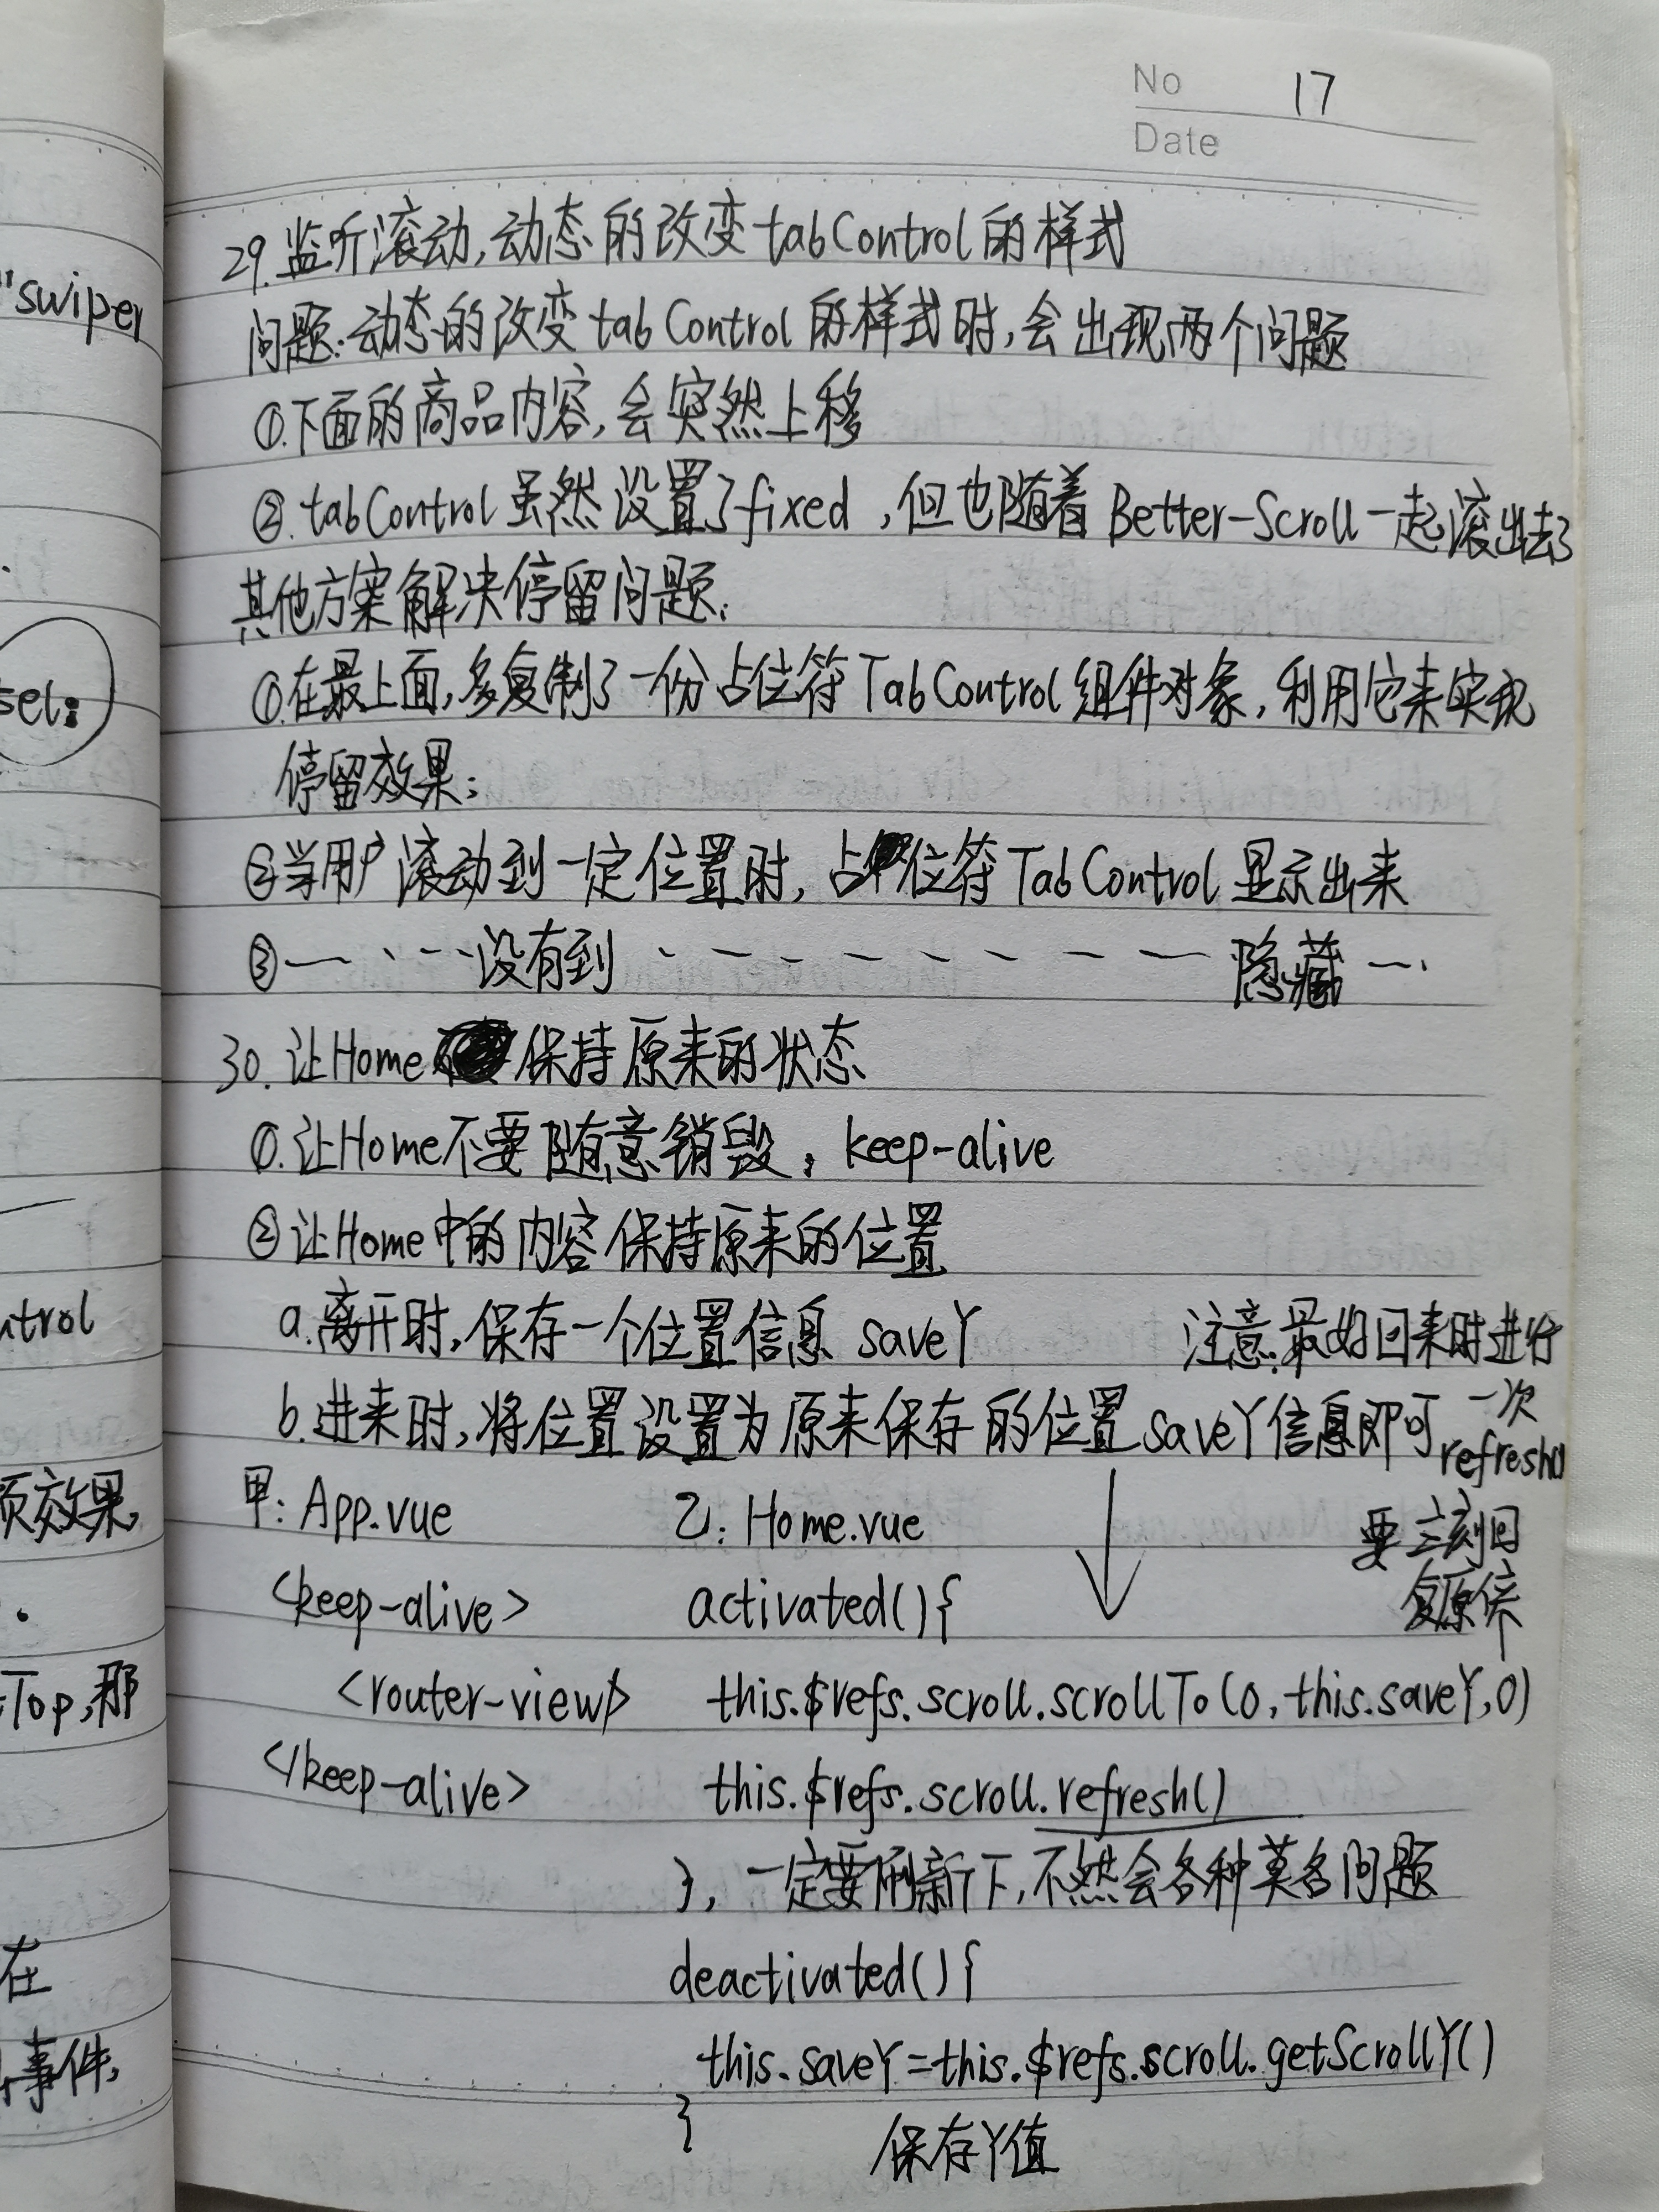 No 17
Date
29.监听滚动,动态的改变tabControl的样式
问题:动态的改变tabControl的样式时,会出现两个问题
①.下面的商品内容,会突然上移
②.tabControl虽然设置了fixed,但也随着Better-Scroll一起滚出去了
其他方案解决停留问题:
①.在最上面,多复制了一份占位符TabControl组件对象,利用它来实现
停留效果;
②当用户滚动到一定位置时,占位符TabControl显示出来
③一 没有到 隐藏
30.让Home保持原来的状态
①.让Home不要随意销毁;keep-alive
②让Home中的内容保持原来的位置
a.离开时,保存一个位置信息saveY
注意:最好回来时进行
b.进来时,将位置设置为原来保存的位置saveY信息即可
一次
refresh()
甲:App.vue 乙:Home.vue
要立刻回
复原位
<keep-alive> activated(){
<router-view/> this.$refs.scroll.scrollTo(0,this.saveY,0)
</keep-alive> this.$refs.scroll.refresh()
},一定要刷新下,不然会各种莫名问题
deactivated(){
this.saveY=this.$refs.scroll.getScrollY()
}
保存Y值
"swiper
sel:
ntrol
页效果,
Top,那
在
事件,